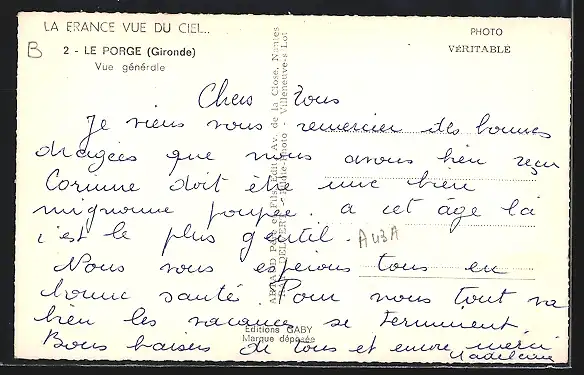 LA FRANCE VUE DU CIEL...
B
2 - LE PORGE (Gironde)
Vue générale
PHOTO
VÉRITABLE
Chers Tous
Je viens vous remercier des bonnes
dragées que nous avons bien reçu
Corinne doit être une bien
mignonne poupée. a cet âge là
c'est le plus gentil.
A43A
Nous vous espérons tous en
bonne santé. Pour nous tout va
bien les vacances se terminent.
Bons baisers de tous et encore merci
Madeleine
Editions GABY
Marque déposée
ARTAUD Père et Fils, Edit., Av. de la Close, Nantes
Villeneuve-s-Lot